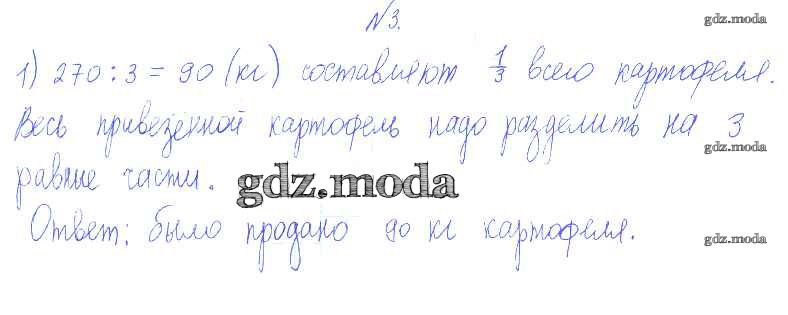 №3.
gdz.moda
1) 270 : 3 = 90 (кг) составляют 1/3 всего картофеля.
Весь привезённой картофель надо разделить на 3
gdz.moda
равные части.
gdz.moda
Ответ: было продано 90 кг картофеля.
gdz.moda